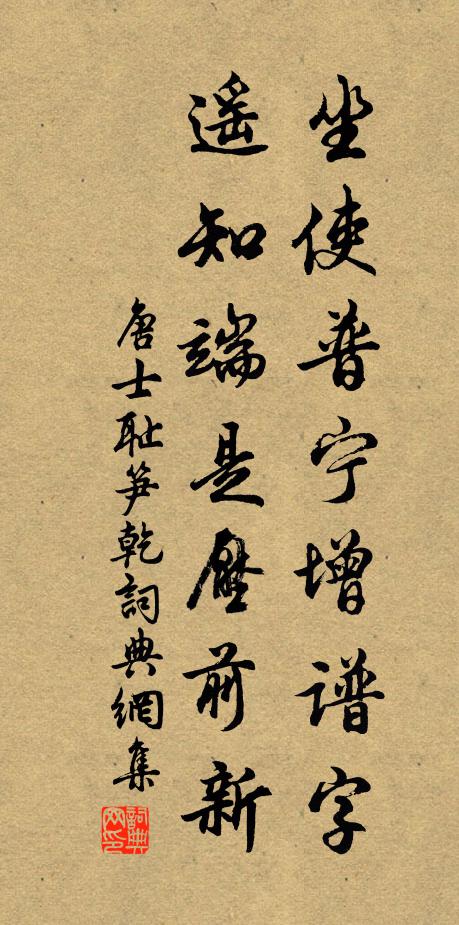 坐使普宁增谱字
遥知端是壓前新
唐士耻笋乾詞典網集
詞典網印